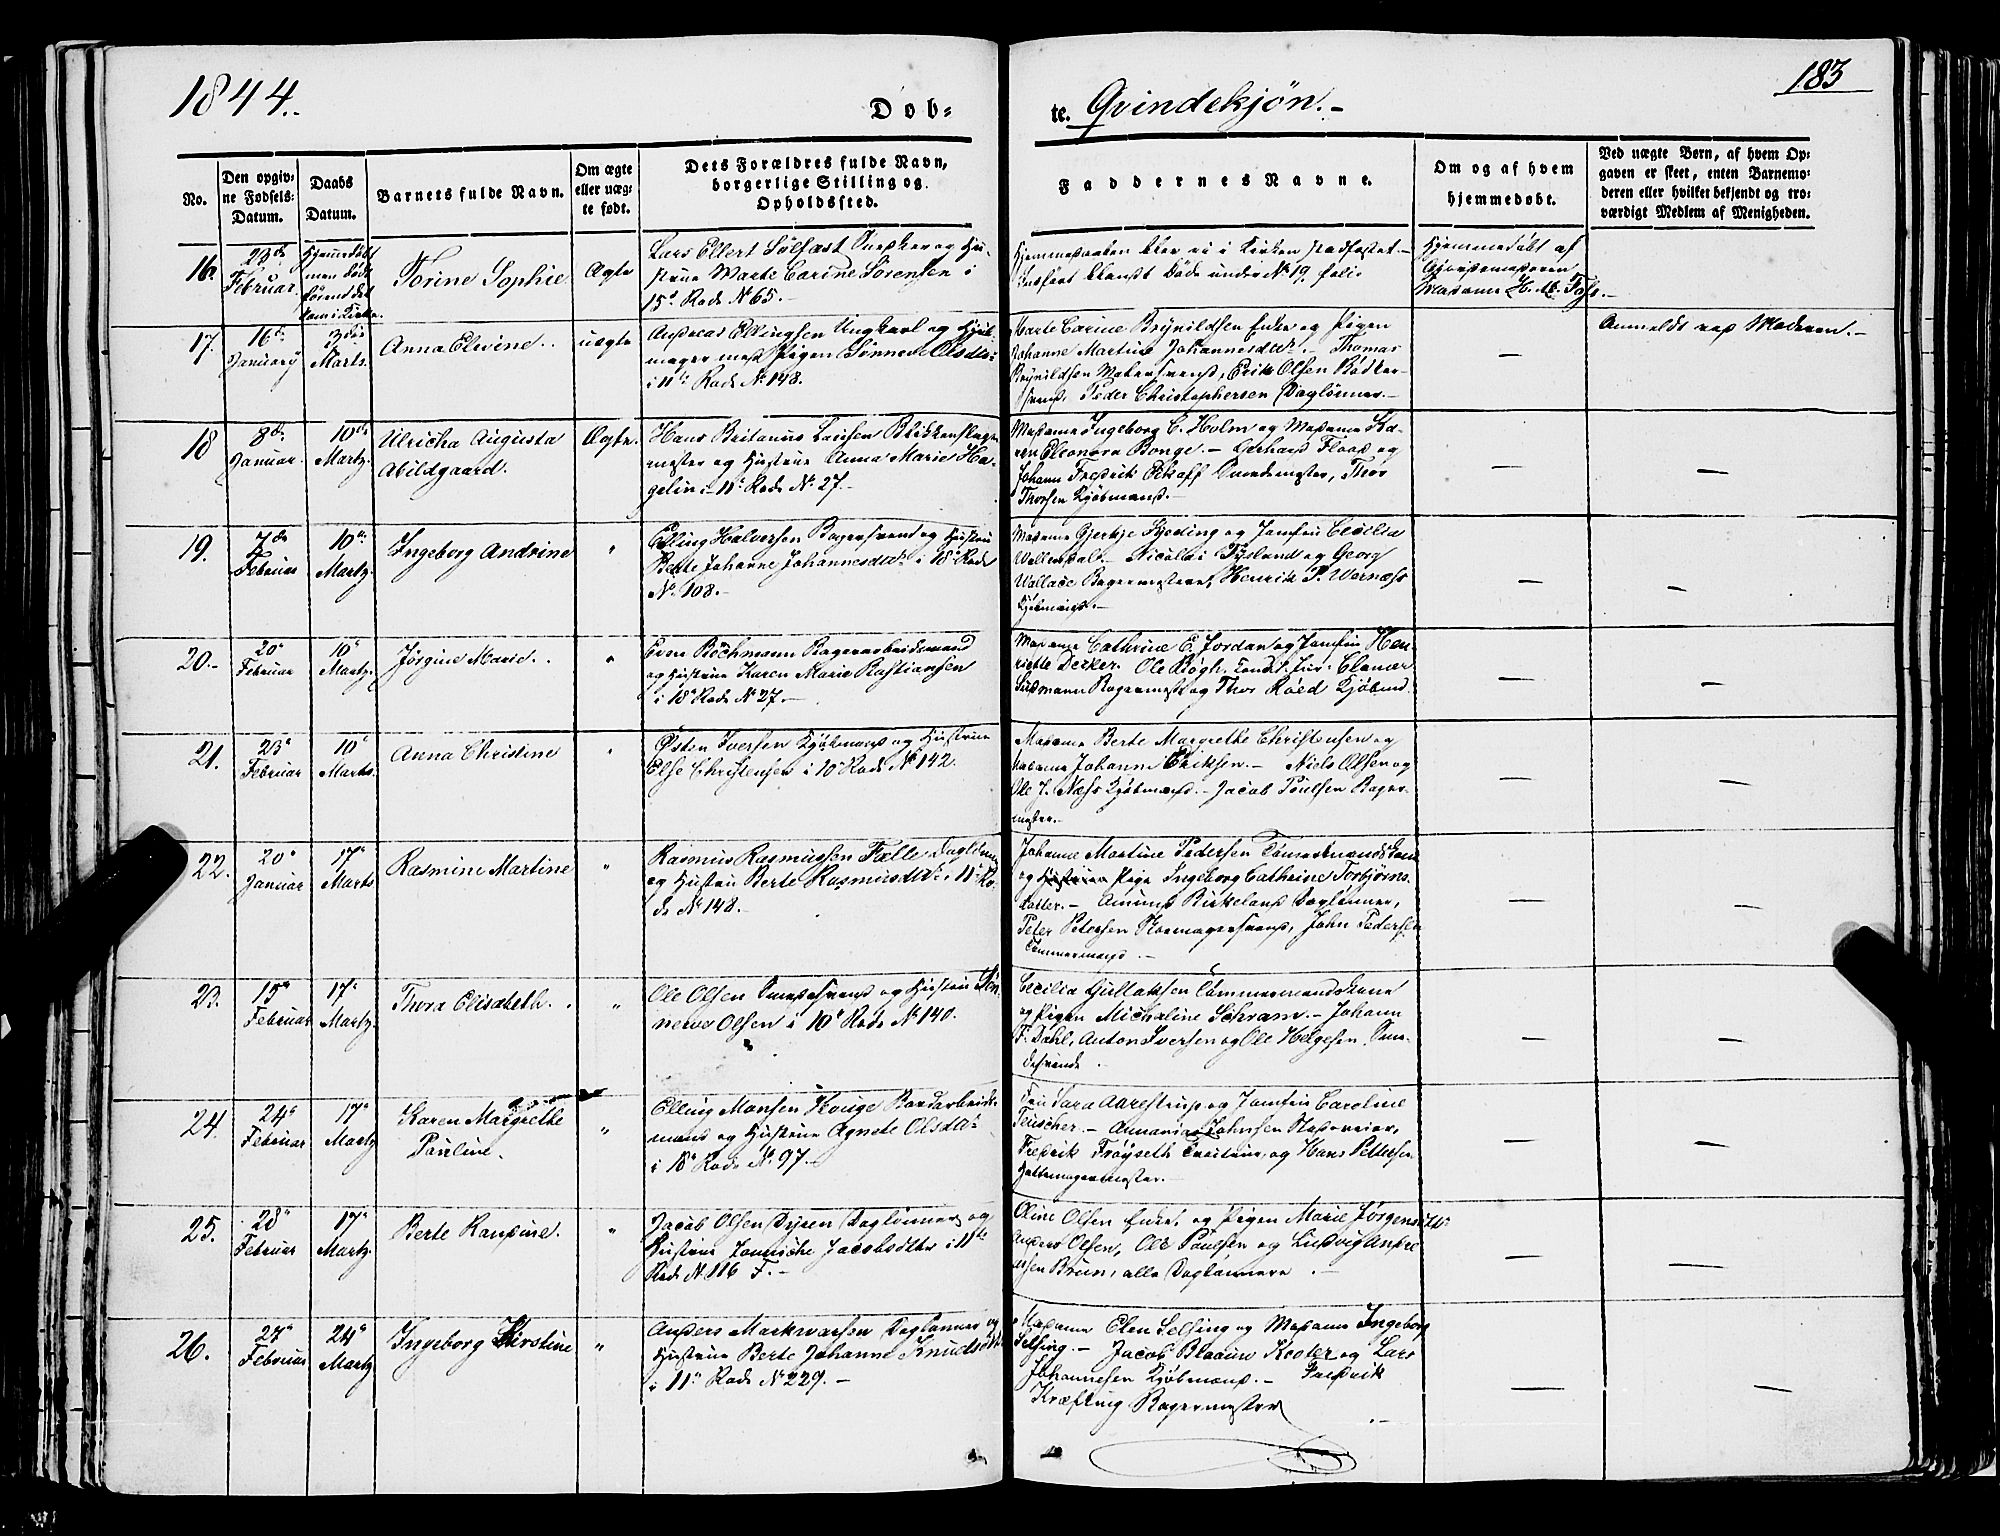 1844.
Døb=
te. Qvindekjøn.
183
No.
Den opgiv=
ne Fødsels=
Datum.
Daabs
Datum.
Barnets fulde Navn.
Om ægte
eller uæg=
te født.
Dets Forældres fulde Navn,
borgerlige Stilling og
Opholdssted.
Faddernes Navne.
Om og af hvem
hjemmedøbt.
Ved uægte Børn, af hvem Op=
gaven er skeet, enten Barnemo=
deren eller hvilket bekjendt og tro=
værdigt Medlem af Menigheden.
16.
23de
Februar.
Hjemmedøbt
men døde
førend det
kom i Kirke.
Torine Sophie.
Ægte
Lars Ellert Sølfast Snedker og Hu-
strue Marte Carine Sørensen i
15de Rode No 65.
Hjemmedaaben blev ei i Kirken stadfæstet.
indført blandt Døde under No 19. folio
Hjemmedøbt af
Gjordemoderen
Madame H. M. Foss.
17.
16de
Januarij
3die
Marts.
Anna Elevine.
uægte
Andreas Ellingsen Ungkarl og
mager med Pigen Sønneve Olsdtr
i 11te Rode No 148.
Marte Carine Brynildsen Enke og Pigen
Johanne Martine Johannesdtr. Thomas
Brynildsen Malersvend, Erik Olsen Bødker-
svend, Peder Christophersen Daglønner.
Anmeldt ved Moderen.
18
8de
Januar.
10de
Martz.
Ulricha Augusta
Abildgaard.
Ægte.
Hans Britanus Lausen Blikkenslager
mester og Hustrue Anna Marie Ha-
gelin i 11te Rode No 27.
Madame Ingeborg C. Holm og Madame Ka-
ren Eleonora Bonge. Gerhard Flood og
Johann Fredrik Ekhoff Snedemester, Thor
Thorsen Kjøbmand.
19.
7de
Februar
10de
Martz.
Ingeborg Andrine
"
Elling Halversen Bagersvend og Hustru
Berte Johanne Johannesdtr i 18de Rode
No 108.
Madame Gjertje Hjeding og Jomfru Cecilia
Wollendal. Nicolai Tysland og Georg
Wallace Bagermestere, Henrik P. Wernæss
Kjøbmand.
20.
20de
Februar
10de
Martz.
Jørgine Marie.
"
Even Bochmann Bagerarbeidsmand
og Hustrue Karen Marie Bastiansen
i 18de Rode No 27.
Madame Cathrine E. Jordan og Jomfru Hen-
riette Decker. Ole Bøgh. Cand. t. Jur. Clamer
Susmann Bagermester og Thor Røed Kjøbmd.
21.
23de
Februar
10de
Marts.
Anna Christine
"
Østen Iversen Kjøbmand og Hustrue
Else Christensen i 10de Rode No 142.
Madame Berte Margrethe Christensen og
Madame Johanne Eriksen. Niels Olsen og
Ole J. Næss Kjøbmænd. Jacob Poulsen Bager-
mester.
22.
20de
Januar
17de
Marts
Rasmine Martine
"
Rasmus Rasmussen Fælle Dagløner
og Hustru Berte Rasmusdtr i 11te Ro-
de No 148.
Johanne Martine Pedersen Tømmermands Kone
og Pige Ingeborg Cathrine Torbjørns-
datter. Amund Birkeland Dagløner,
Peter Petersen Skomagersvend, John Pedersen
Tømmermand.
23.
15de
Februar
17de
Martz.
Thora Elisabeth.
"
Ole Olsen Smedesvend og Hustru Søn-
neve Olsen i 10de Rode No 140.
Cecilia Gullaksen Tømmermandskone
og Pigen Michaline Schram. Johann
F. Dahl, Anton Iversen og Ole Helgesen Sme-
desvende.
24.
24de
Februar
17de
Martz
Karen Margrethe
Pauline.
"
Elling Monsen Houge Bordarbeids-
mand og Hustrue Agnete Olsdtr
i 18de Rode No 97.
Fru Sara Aarestrup og Jomfru Caroline
Teuscher. Ananias Johnsen
Fredrik Frøyseth og Hans Pettersen
Hattemagermester.
25.
28de
Februar
17de
Martz.
Berte Randine.
"
Jacob Olsen Dyren Dagløner og
Hustrue Jannicke Jacobsdtr i 11te
Rode No 116 F.
Oline Olsen Enke, og Pigen Marie Jørgensdtr
Anders Olsen, Ole Poulsen og Ludvig Andre-
assen Brun, alle Daglønere.
26.
27de
Februar
24de
Martz
Ingeborg Kirstine
"
Anders Markussen Dagløner og
Hustrue Berte Johanne Knudsdtr
i 11te Rode No 229.
Madame Elen Selsing og Madame Ingeborg
Selsing. Jacob Blaauw Koster og Lars
Johannesen Kjøbmænd. Fredrik
Kræfting Bagermester